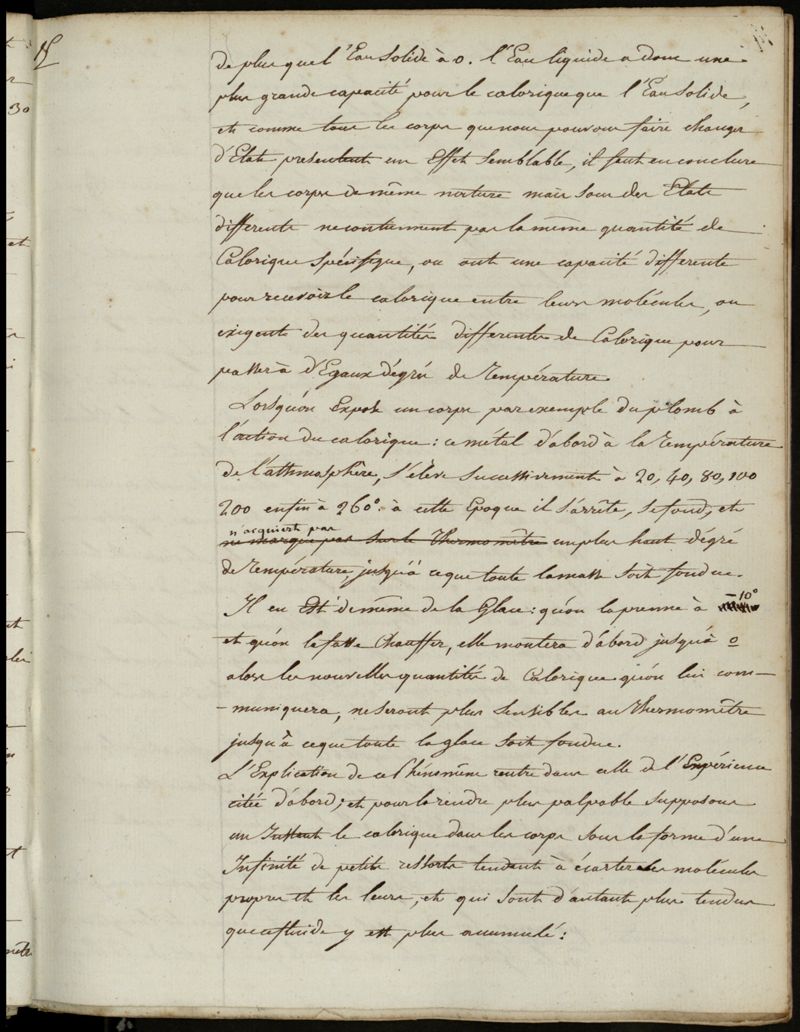 15
de plus que l'Eau Solide à 0. l'Eau liquide a donc une
plus grande capacité pour le calorique que l'Eau Solide,
et comme tous les corps que nous pouvons faire changer
d'Etats presentent un Effet Semblable, il faut en conclure
que les corps de même nature mais sous des Etats
differents ne contiennent pas la même quantité de
Calorique Spécifique, ou ont une capacité differente
pour recevoir le calorique entre leurs molécules, ou
exigent des quantités differentes de Calorique pour
passer à d'Egaux dégrés de Température.
Lorsqu'on Expose un corps par exemple du plomb à
l'action du calorique : ce métal d'abord à la Température
de l'athmosphère, s'élève Successivement à 20, 40, 80, 100
200 enfin à 260° à cette Epoque il s'arrête, se fond, et
n'acquiert pas
ne marque pas sur le Thermomètre un plus haut dégré
de Température, jusqu'à ce que toute la masse soit fondue.
Il en Est de même de la Glace : qu'on la prenne à -10°
et qu'on la fasse Chauffer, elle montera d'abord jusqu'à 0
alors les nouvelles quantités de Calorique qu'on lui com-
-muniquera, ne seront plus sensibles au Thermomètre
jusqu'à ce que toute la glace soit fondue.
L'Explication de ce Phénomène rentre dans celle de l'Expérience
citée d'abord; et pour la rendre plus palpable supposons
un Instant le calorique dans les corps sous la forme d'une
Infinité de petits ressorts tendants à écarter les molécules
propres et les leurs, et qui sont d'autant plus tendus
que ce fluide y est plus accumulé :
et
30
et